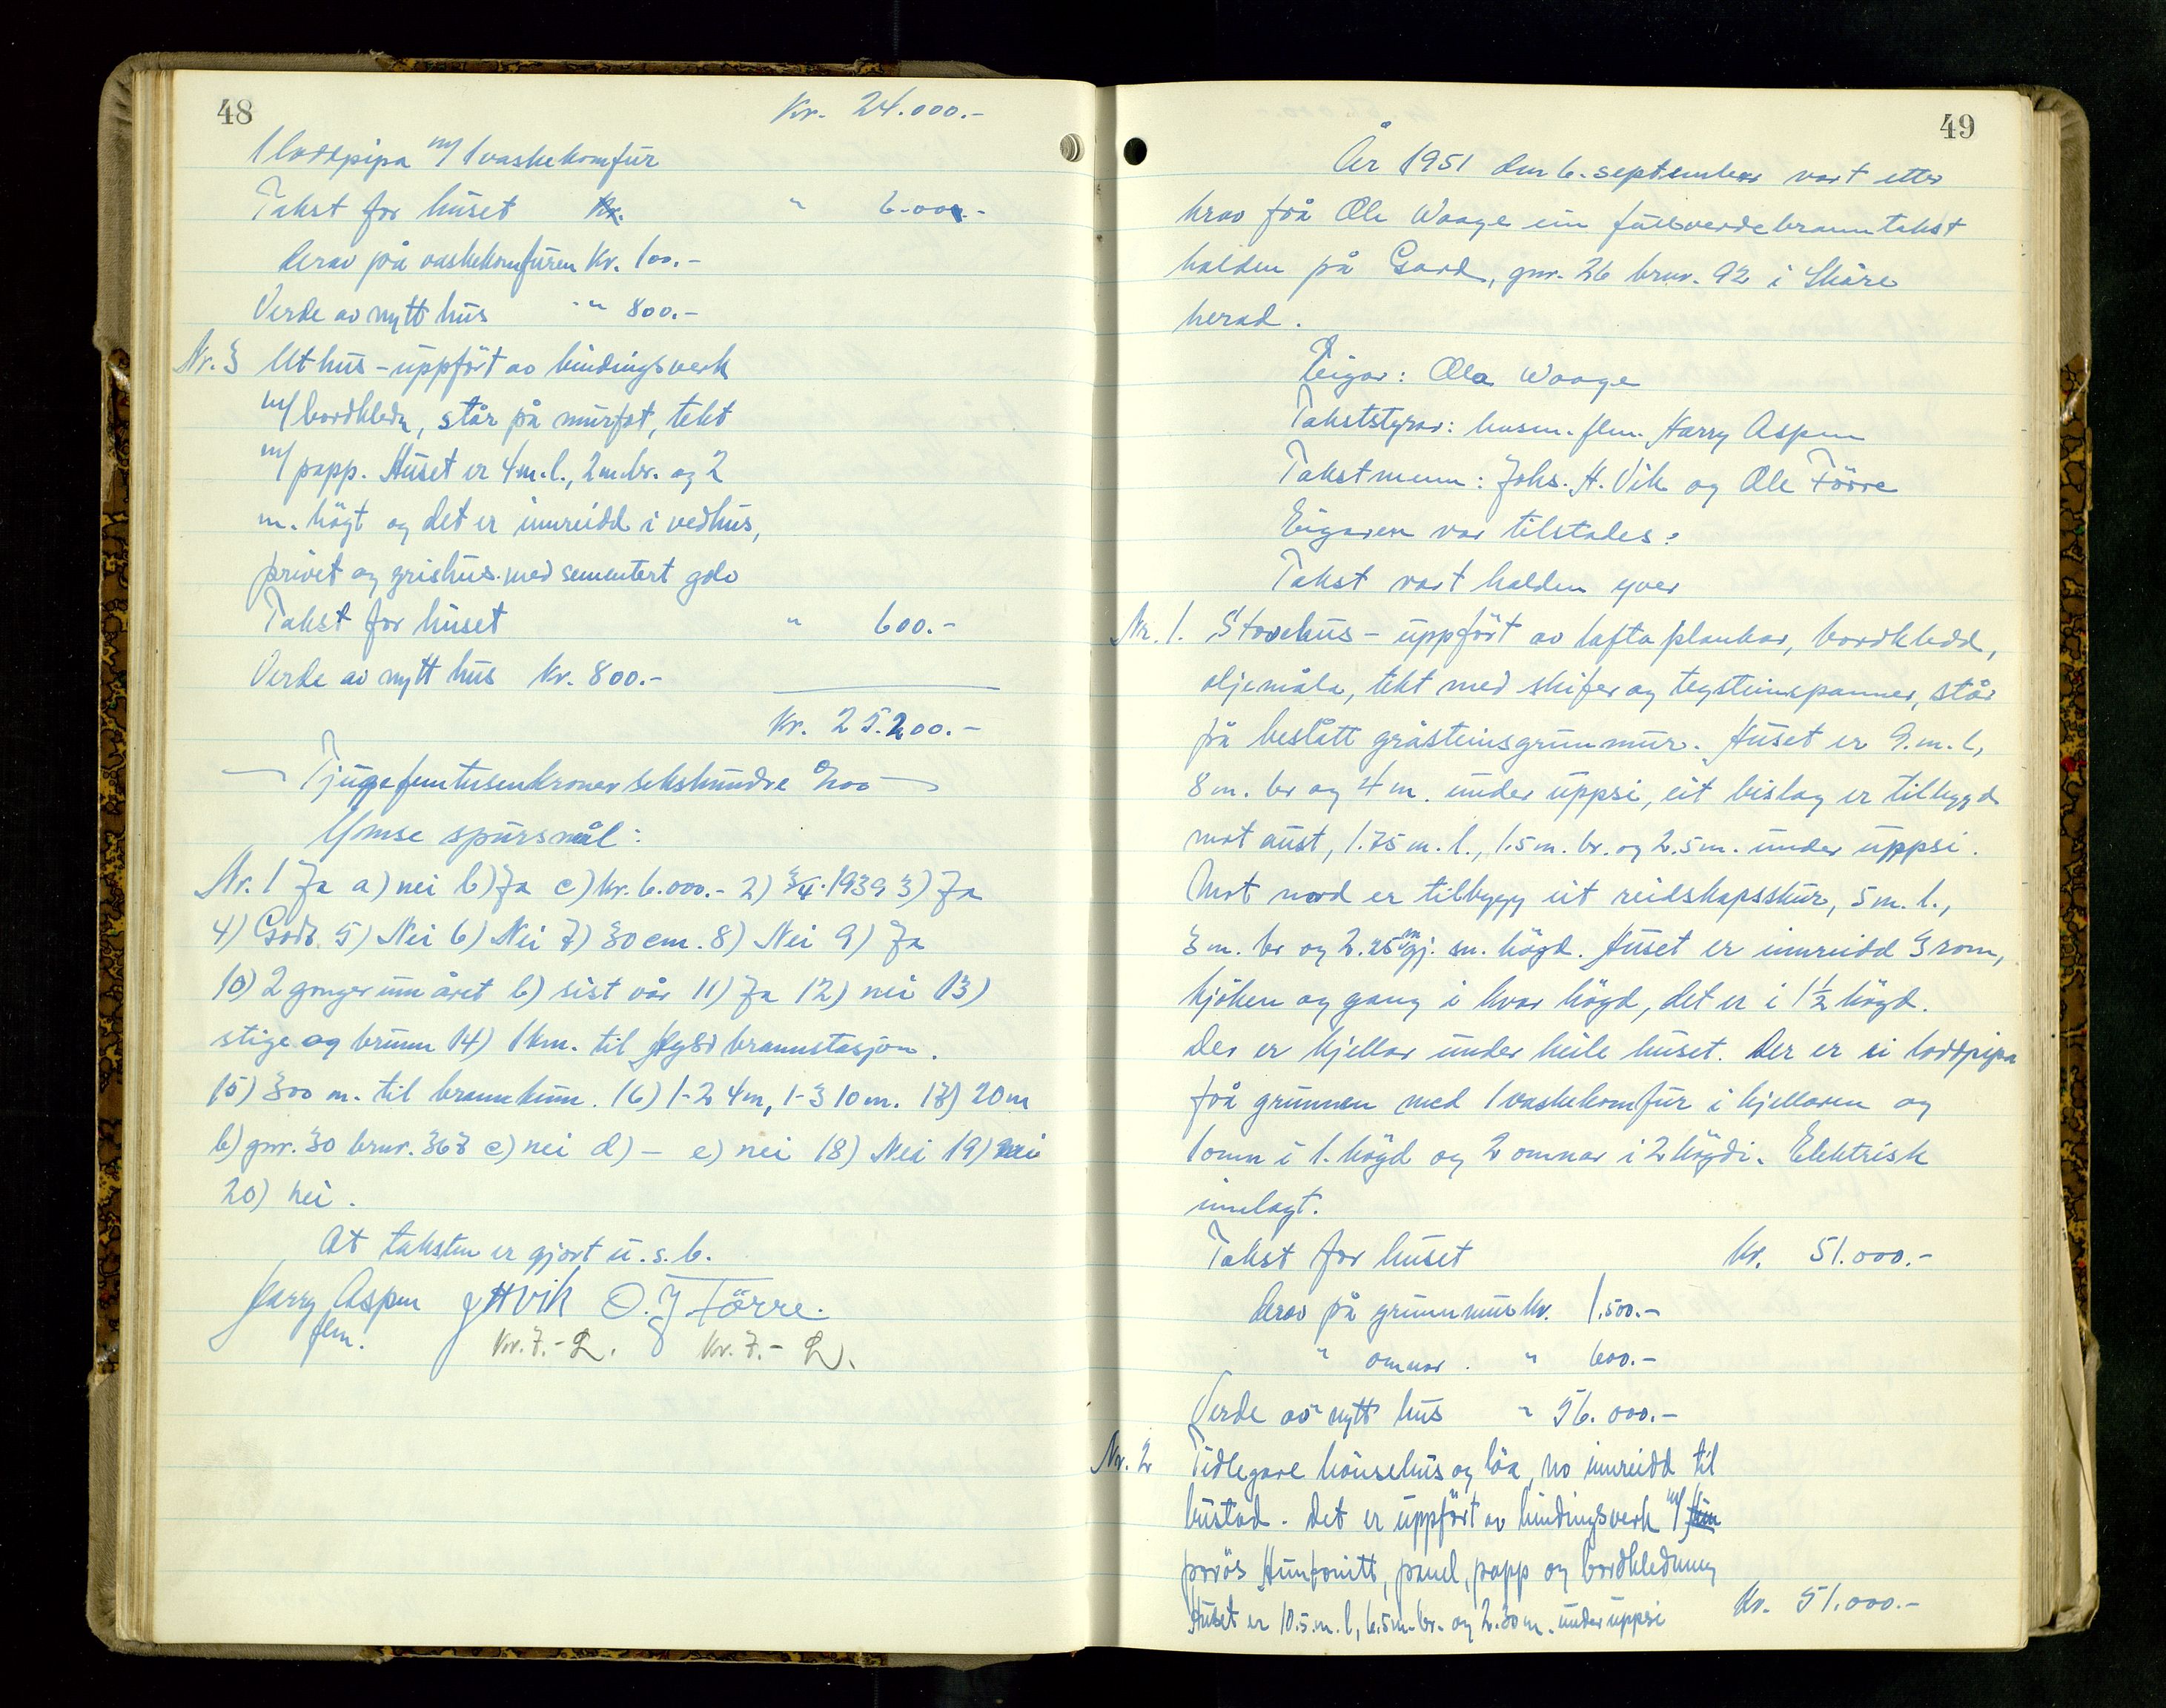 48
Kr. 24.000.-
1 loddpipa m/ 1 vaskekomfür
Takst for huset Kr. " 6.000.-
derav på vaskekomfüren Kr. 100.-
Verde av nytt hus " 800.-
Nr. 3 Uthus - uppfört av bindingsverk
m/ bordkledn, står på murfot, tekt
m/ papp. Huset er 4 m. l., 2 m br. og 2
m. högt og det er innreidd i vedhus,
privet og grishus med sementert golv
Takst for huset " 600.-
Verde av nytt hus Kr. 800.-
Kr. 25.200.-
Tjugefemtusenkroner sekshundre 0/100
Ymse spursmål:
Nr. 1 Ja a) nei b) Ja c) kr. 6.000.- 2) 3/4. 1939 3) Ja
4) Godt. 5) Nei 6) Nei 7) 30 cm. 8) Nei 9) Ja
10) 2 gonger um året b) sist vår 11) Ja 12) nei 13)
stige og brunn 14) 1 km. til brannstasjon.
15) 300 m. til brannkum. 16) 1-2 4 m, 1-3 10 m. 17) 20 m
b) gnr. 30 brnr. 367 c) nei d) - e) nei 18) Nei 19) nei
20) nei.
At taksten er gjort u. s. b.
Harry Aspen J H Vik O. J.Förre.
flm. Kr. 7.- Kr. 7.-
49
År 1951 den 6. september vart etter
krav frå Ole Waage ein fullverdebranntakst
halden på Gard, gnr. 26 brnr. 92 i Skåre
herad.
Eigar: Ola Waage
Takststyrar: lensm. flm. Harry Aspen
Takstmenn: Johs. H. Vik og Ole Förre
Eigaren var tilstades:
Takst vart halden yver
Nr. 1. Stovehus - uppfört av lafta plankar, bordkledd,
oljemåla, tekt med skifer og teglsteinspanner, står
på beslått gråsteinsgrunnmur. Huset er 9. m. l,
8 m. br og 4 m. under uppsi, eit bislag er tilbyggd
mot aust, 1.75 m. l., 1.5 m. br. og 2.5 m. under uppsi.
Mot nord er tilbygg eit reidskapsskur, 5 m. l.,
3 m. br og 2.25 m gj. sn. högd. Huset er innreidd 3 rom,
kjöken og gang i kvar högd, det er i 1 1/2 högd.
Der er kjellar under heile huset. Der er ei loddpipa
frå grunnen med 1 vaskekomfür i kjellaren og
1 omn i 1. högd og 2 omnar i 2 högdi. Elektrisk
innlagt.
Takst for huset Kr. 51.000.-
derav på grunnmur kr. 1.500.-
" omnar. " 600.-
Verde av nytt hus " 56.000.-
Nr. 2 Tidlegare hönsehus og löa, no innreidd til
bustad. Det er uppfört av bindingsverk m/
porös Huntonitt, panel, papp og bordkledning
Huset er 10.5. m. l, 6.5 m. br. og 2.30 m. under uppsi
Kr. 51.000.-